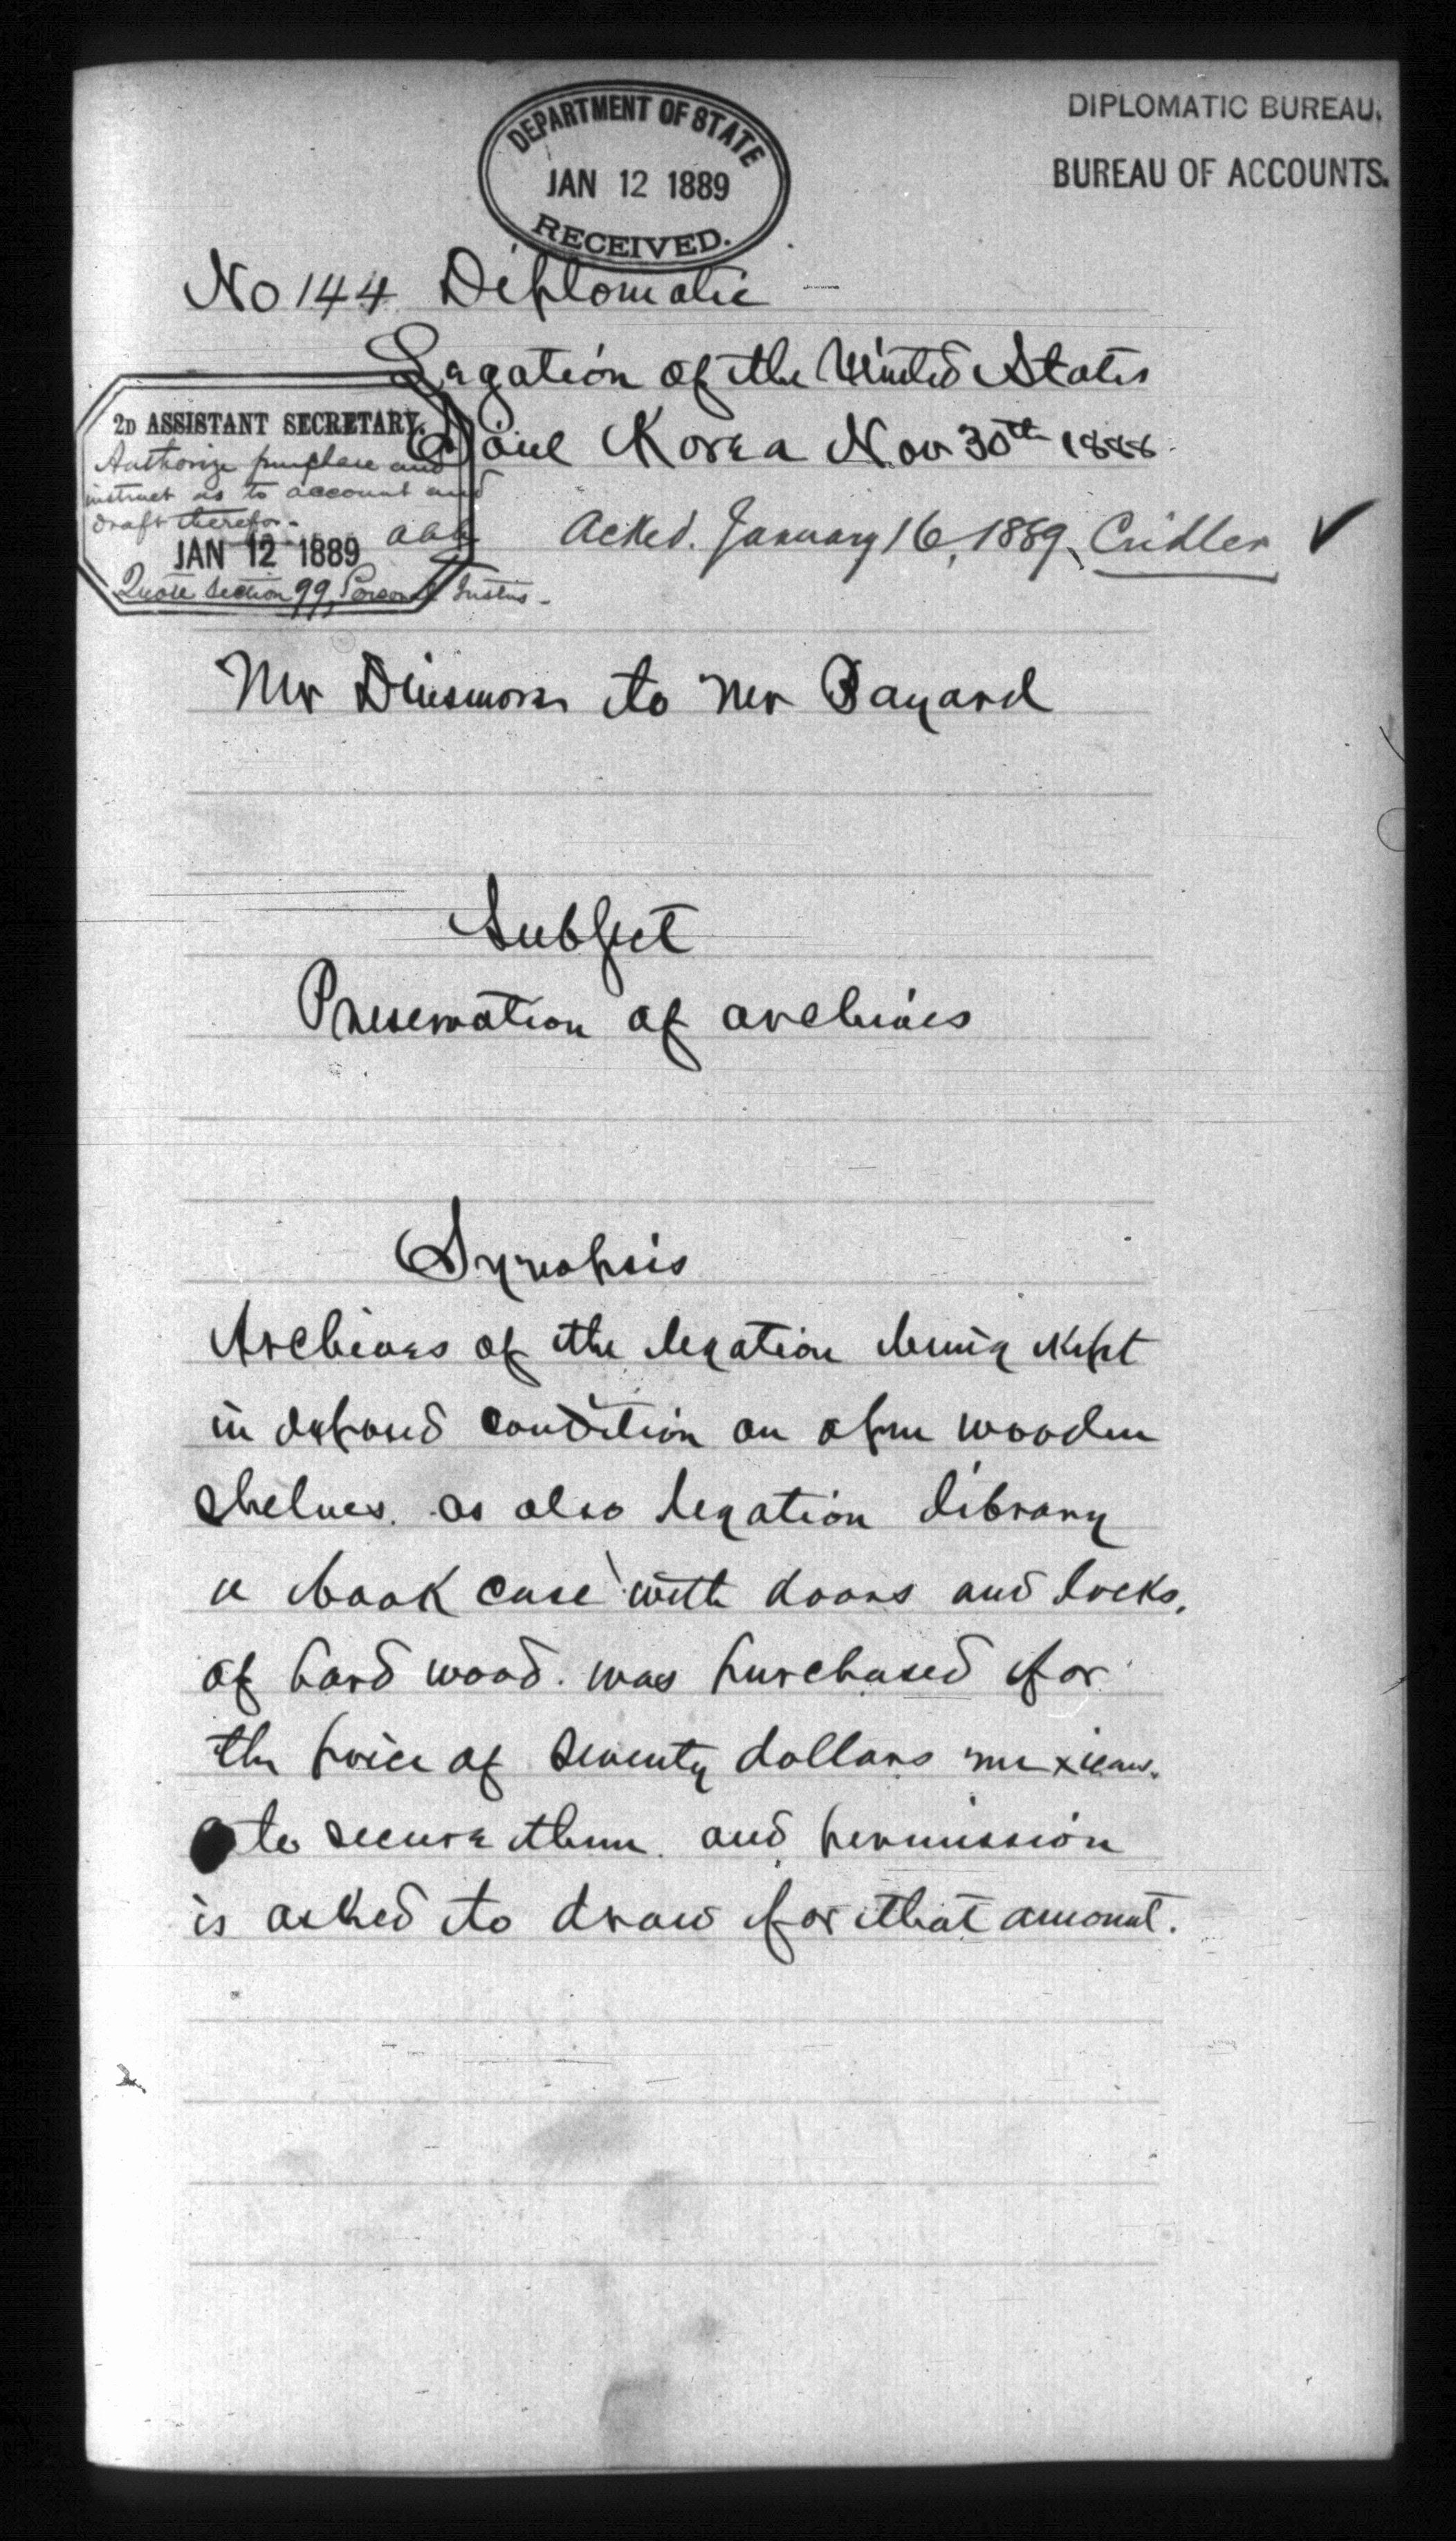 DEPARTMENT OF STATE
JAN 12 1889
RECEIVED.
DIPLOMATIC BUREAU.
BUREAU OF ACCOUNTS.
No 144 Diplomatic
Legation of the United States
Söul Korea Nov 30th 1888.
2D ASSISTANT SECRETARY.
Authorize purchase and
instruct as to account and
draft therefor.
JAN 12 1889
Quote Section 99, Personal Instns.
acked. January 16, 1889, Cridler ✓
Mr Dinsmore to Mr Bayard
Subject
Preservation of archives
Synopsis
Archives of the legation being kept
in exposed condition on open wooden
shelves. as also legation library
a book case with doors and locks,
of hard wood. was purchased for
the price of seventy dollars mexican.
to secure them. and permission
is asked to draw for that amount.